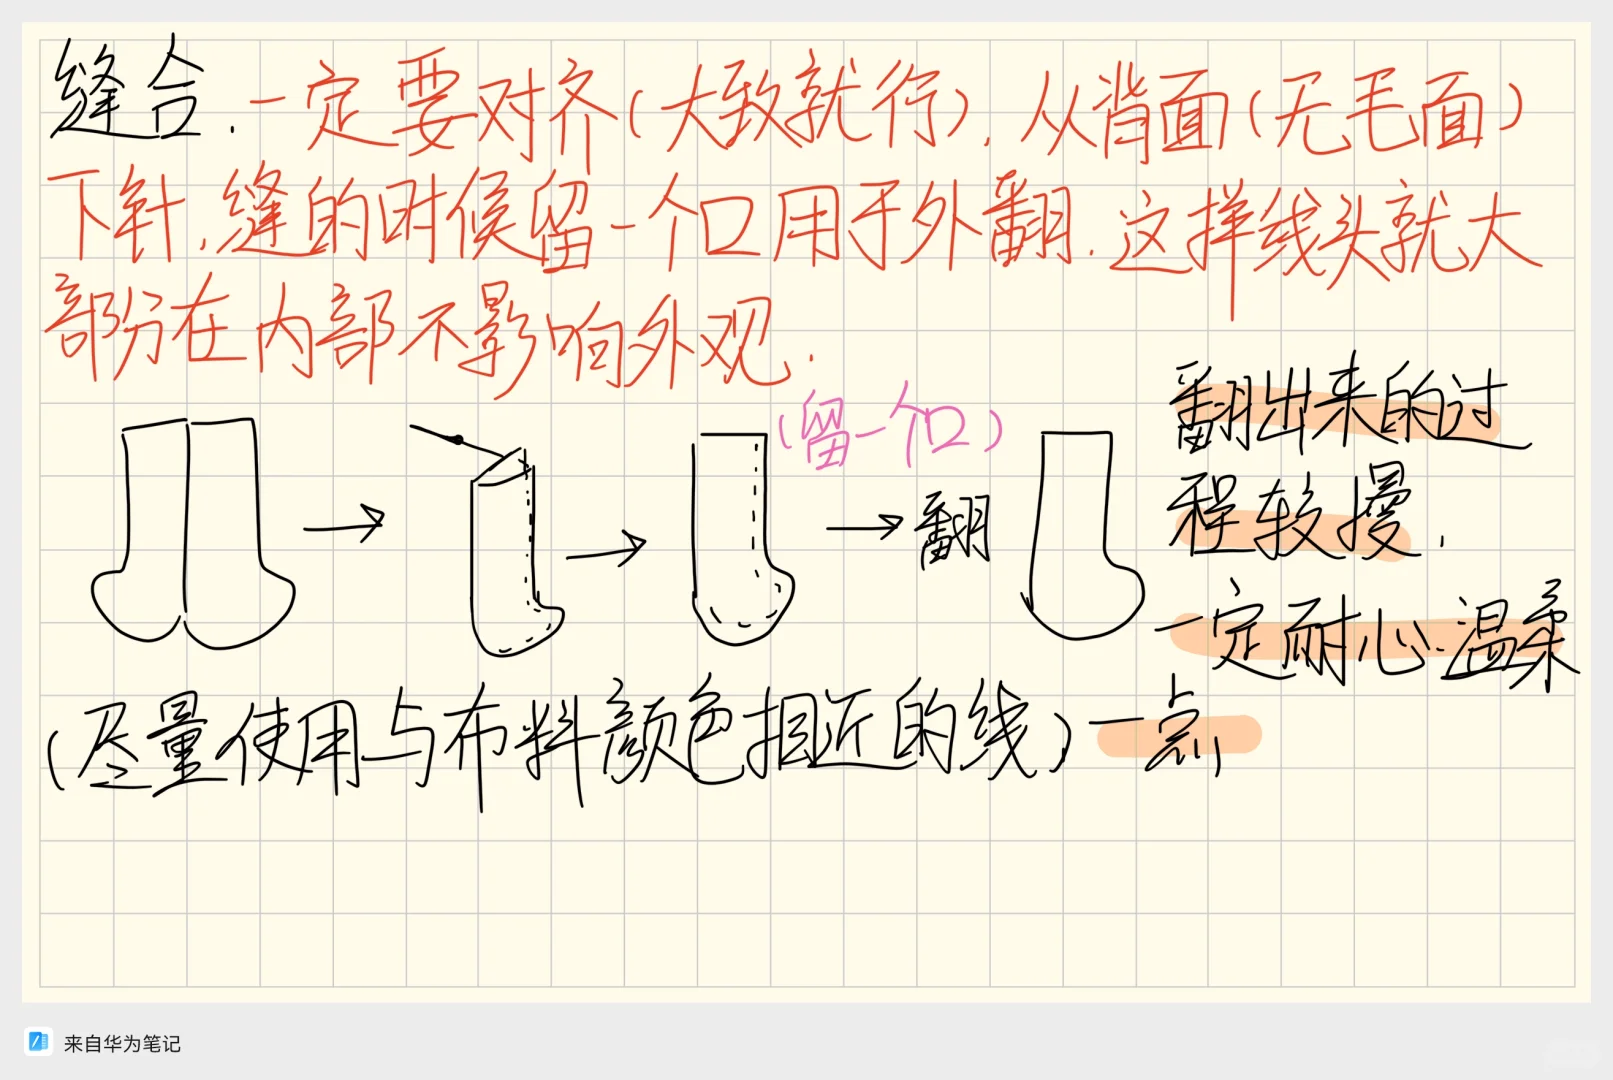 缝合.一定要对齐(大致就行),从背面(无毛面)
下针,缝的时候留一个口用于外翻.这样线头就大
部分在内部不影响外观.
(留一个口)
翻
翻出来的过
程较慢.
一定耐心.温柔
一点
(尽量使用与布料颜色相近的线)
来自华为笔记